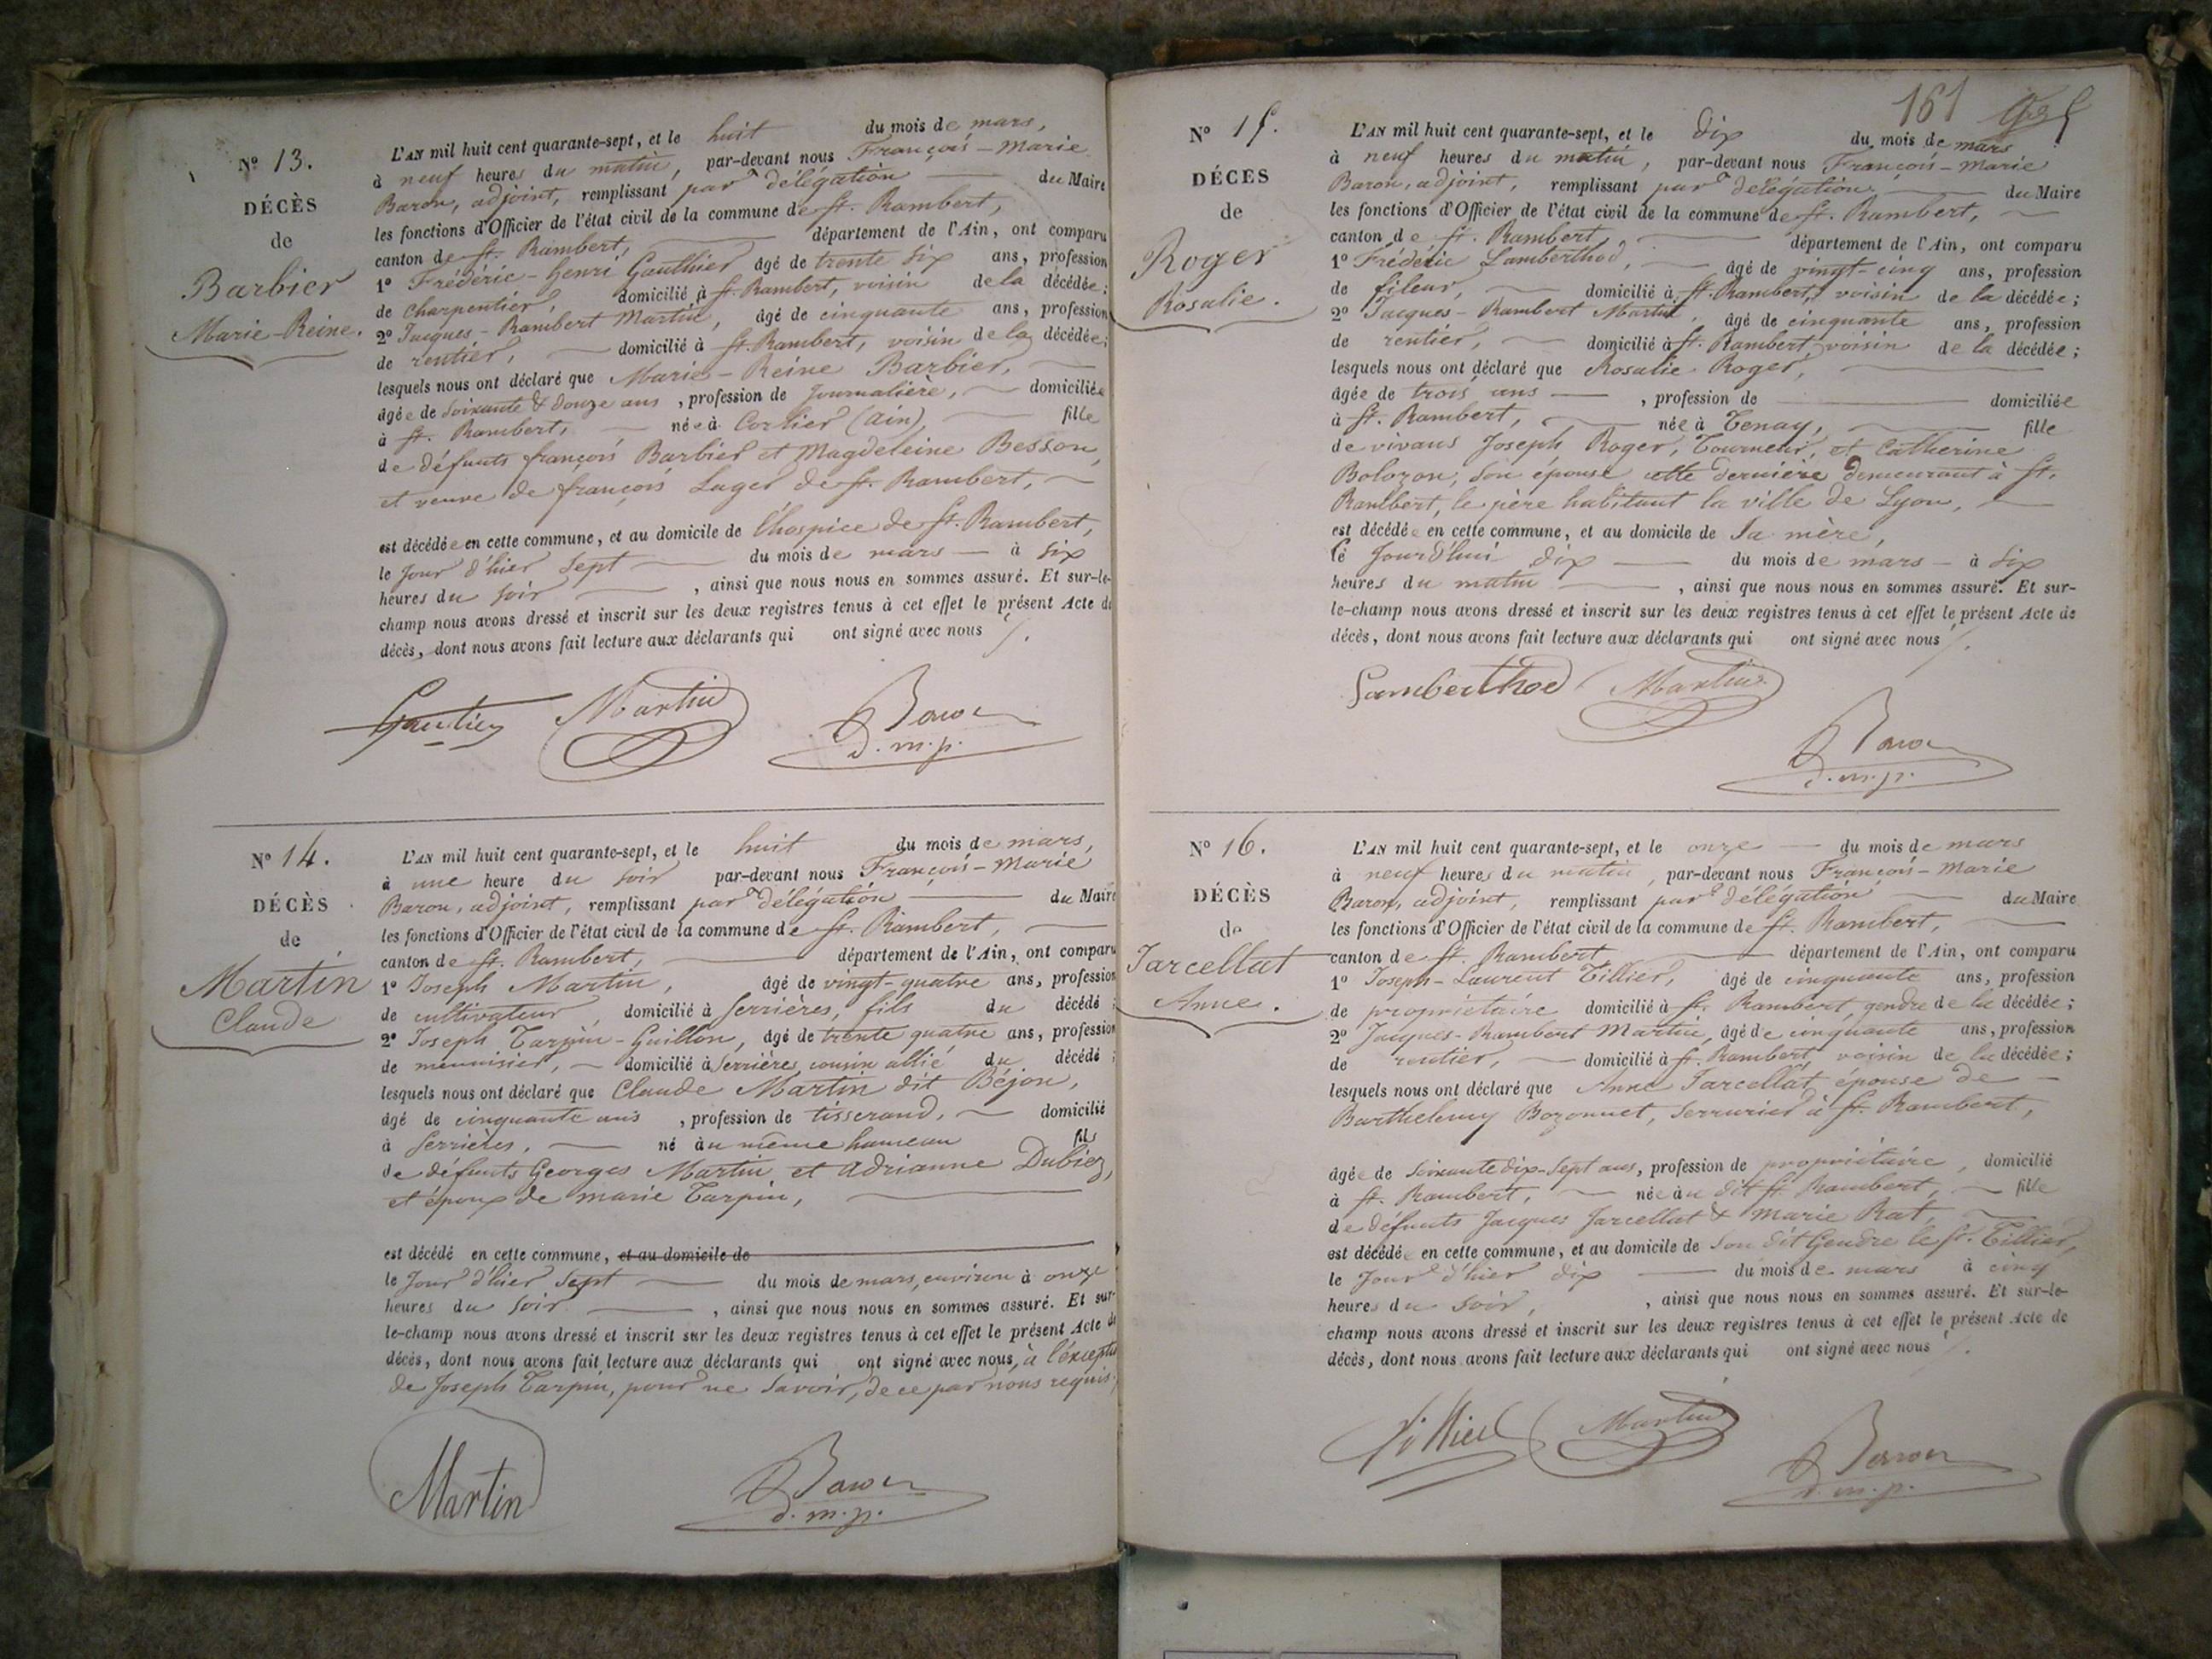 N° 13.
DÉCÈS
de
Barbier
Marie-Reine.
L'AN mil huit cent quarante-sept, et le huit du mois de mars,
à neuf heures du matin, par-devant nous François-Marie
Baron, adjoint, remplissant par délégation du Maire
les fonctions d'Officier de l'état civil de la commune de St. Rambert,
canton de St. Rambert, département de l'Ain, ont comparu
1° Frédéric-henri Gauthier âgé de trente six ans, profession
de charpentier, domicilié à St. Rambert, voisin de la décédée;
2° Jacques-Rambert Martin, âgé de cinquante ans, profession
de rentier, domicilié à St. Rambert, voisin de la décédée;
lesquels nous ont déclaré que Marie-Reine Barbier,
âgée de soixante & douze ans, profession de Journalière, domiciliée
à St. Rambert, née à Corlier (Ain), fille
de défunts françois Barbier et Magdeleine Besson,
et veuve de françois Luger de St. Rambert,
est décédée en cette commune, et au domicile de l'hospice de St. Rambert,
le Jour d'hier sept du mois de mars à six
heures du soir, ainsi que nous nous en sommes assuré. Et sur-le-
champ nous avons dressé et inscrit sur les deux registres tenus à cet effet le présent Acte de
décès, dont nous avons fait lecture aux déclarants qui ont signé avec nous
Gautier Martin Baron
d. m. p.
N° 14.
DÉCÈS
de
Martin
Claude
L'AN mil huit cent quarante-sept, et le huit du mois de mars,
à une heure du soir par-devant nous François-Marie
Baron, adjoint, remplissant par délégation du Maire
les fonctions d'Officier de l'état civil de la commune de St. Rambert,
canton de St. Rambert, département de l'Ain, ont comparu
1° Joseph Martin, âgé de vingt-quatre ans, profession
de cultivateur, domicilié à Serrières, fils du décédé;
2° Joseph Tarpin-Guillon, âgé de trente quatre ans, profession
de menuisier, domicilié à Serrières, cousin allié du décédé;
lesquels nous ont déclaré que Claude Martin dit Béjon,
âgé de cinquante ans, profession de tisserand, domicilié
à Serrières, né au même hameau fils
de défunts Georges Martin et Adrianne Dubiez,
et époux de marie Tarpin,
est décédé en cette commune, et au domicile de
le Jour d'hier sept du mois de mars, environ à onze
heures du soir, ainsi que nous nous en sommes assuré. Et sur-
le-champ nous avons dressé et inscrit sur les deux registres tenus à cet effet le présent Acte de
décès, dont nous avons fait lecture aux déclarants qui ont signé avec nous, à l'exception
de Joseph Tarpin, pour ne savoir, de ce par nous requis.
Martin Baron
d. m. p.
161
N° 15.
DÉCÈS
de
Roger
Rosalie.
L'AN mil huit cent quarante-sept, et le dix du mois de mars
à neuf heures du matin, par-devant nous François-Marie
Baron, adjoint, remplissant par délégation du Maire
les fonctions d'Officier de l'état civil de la commune de St. Rambert,
canton de St. Rambert, département de l'Ain, ont comparu
1° Frédéric Lamberthod, âgé de vingt-cinq ans, profession
de fileur, domicilié à St. Rambert, voisin de la décédée;
2° Jacques-Rambert Martin, âgé de cinquante ans, profession
de rentier, domicilié à St. Rambert, voisin de la décédée;
lesquels nous ont déclaré que Rosalie Roger,
âgée de trois ans, profession de domiciliée
à St. Rambert, née à Tenay, fille
de vivans Joseph Roger, Tourneur, et Catherine
Bolozon, son épouse cette dernière demeurant à St.
Rambert, le père habitant la ville de Lyon,
est décédée en cette commune, et au domicile de sa mère,
le Jourd'hui dix du mois de mars à six
heures du matin, ainsi que nous nous en sommes assuré. Et sur-
le-champ nous avons dressé et inscrit sur les deux registres tenus à cet effet le présent Acte de
décès, dont nous avons fait lecture aux déclarants qui ont signé avec nous
Lamberthod Martin
Baron
d. m. p.
N° 16.
DÉCÈS
de
Jarcellat
Anne.
L'AN mil huit cent quarante-sept, et le onze du mois de mars
à neuf heures du matin, par-devant nous François-Marie
Baron, adjoint, remplissant par délégation du Maire
les fonctions d'Officier de l'état civil de la commune de St. Rambert,
canton de St. Rambert département de l'Ain, ont comparu
1° Joseph-Laurent Tillier, âgé de cinquante ans, profession
de propriétaire domicilié à St. Rambert, gendre de la décédée;
2° Jacques-Rambert Martin, âgé de cinquante ans, profession
de rentier, domicilié à St. Rambert, voisin de la décédée;
lesquels nous ont déclaré que Anne Jarcellat épouse de
Barthelemy Bozonnet, serrurier à St. Rambert,
âgée de soixante dix-sept ans, profession de propriétaire, domicilié
à St. Rambert, née au dit St. Rambert, fille
de défunts Jacques Jarcellat & Marie Rat,
est décédée en cette commune, et au domicile de son dit Gendre le Sr. Tillier,
le Jour d'hier dix du mois de mars à cinq
heures du soir, ainsi que nous nous en sommes assuré. Et sur-le-
champ nous avons dressé et inscrit sur les deux registres tenus à cet effet le présent Acte de
décès, dont nous avons fait lecture aux déclarants qui ont signé avec nous
Tillier Martin Baron
d. m. p.